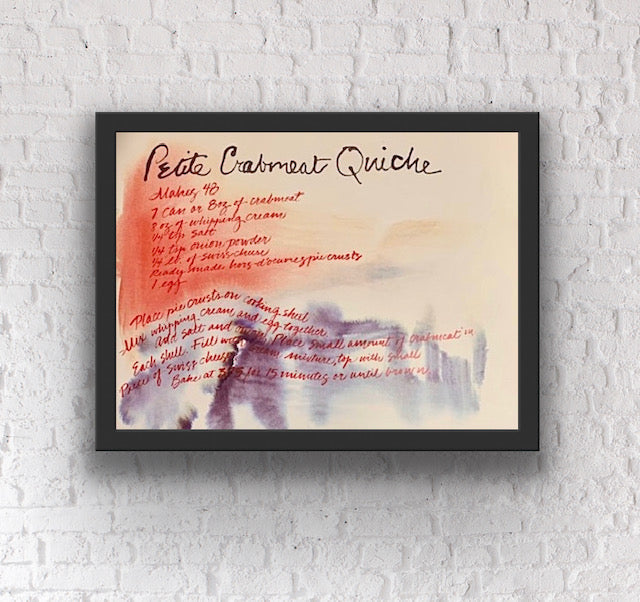 Petite Crabmeat Quiche
Makes 48
1 can or 8 oz of crabmeat
8 oz of whipping cream
1/4 tsp salt
1/4 tsp onion powder
1/4 lb. of swiss cheese
Ready made hors-d'ouvres pie crusts
1 egg
Place pie crusts on cooking sheet
Mix whipping cream and egg together
add salt and onion. Place small amount of crabmeat in
Each shell. Fill with cream mixture, top with small
Piece of Swiss cheese
Bake at for 15 minutes or until brown.